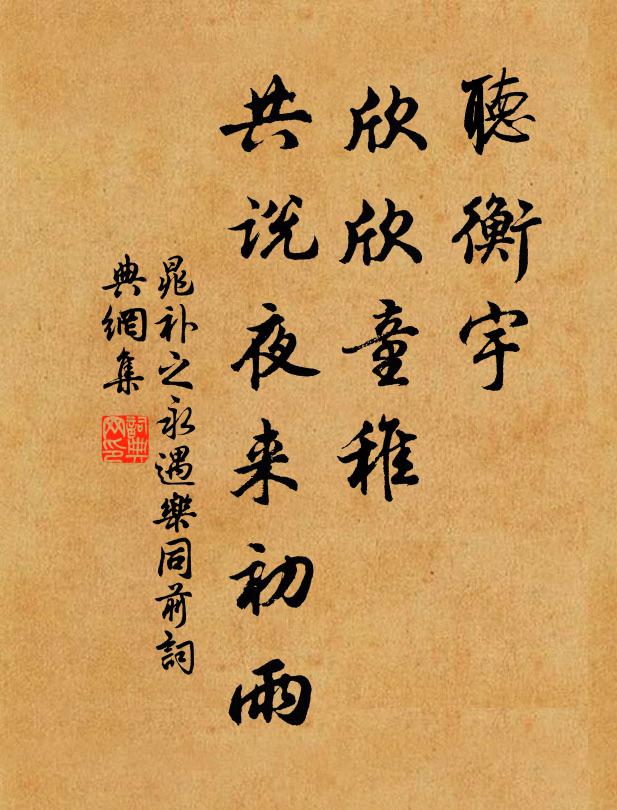 聽衡宇
欣欣童稚
共说夜来初雨
晁补之永遇樂同前詞
典網集
詞典網印